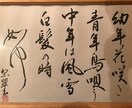 幼年花咲き
青年鳥唄う
中年は風雪
白髪の時